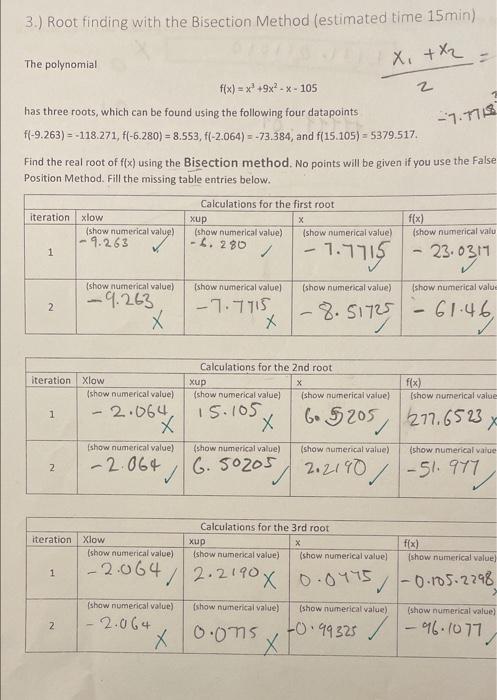 3.) Root finding with the Bisection Method (estimated time 15min)
x₁ + x₂ =
2
The polynomial
f(x) = x³ +9x² - x - 105
-7.7715
has three roots, which can be found using the following four datapoints
f(-9.263) = -118.271, f(-6.280) = 8.553, f(-2.064) = -73.384, and f(15.105) = 5379.517.
Find the real root of f(x) using the Bisection method. No points will be given if you use the False
Position Method. Fill the missing table entries below.
Calculations for the first root
iteration xlow xup x f(x)
(show numerical value) (show numerical value) (show numerical value) (show numerical valu
1 -9.263 ✓ -6.280 ✓ -7.7715 ✓ -23.0317 ✓
(show numerical value) (show numerical value) (show numerical value) (show numerical value
2 -9.263 X -7.7715 X -8.51725 ✓ -61.46 ✓
Calculations for the 2nd root
iteration Xlow xup x f(x)
(show numerical value) (show numerical value) (show numerical value) (show numerical value
1 -2.064 X 15.105 X 6.5205 ✓ 277.6523 X
(show numerical value) (show numerical value) (show numerical value) (show numerical value
2 -2.064 ✓ 6.50205 ✓ 2.2190 ✓ -51.977 ✓
Calculations for the 3rd root
iteration Xlow xup x f(x)
(show numerical value) (show numerical value) (show numerical value) (show numerical value)
1 -2.064 ✓ 2.2190 X 0.0775 ✓ -0.105.2298
(show numerical value) (show numerical value) (show numerical value) (show numerical value)
2 -2.064 X 0.0775 X -0.99325 ✓ -96.1077 ✓